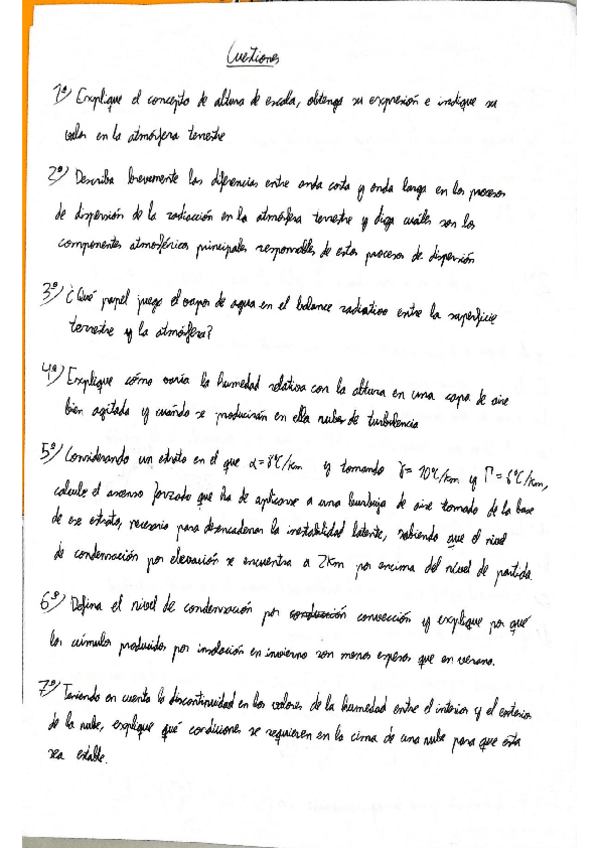 Cuestiones
1º) Explique el concepto de altura de escala, obtenga su expresión e indique su
valor en la atmósfera terrestre
2º) Describa brevemente las diferencias entre onda corta y onda larga en los procesos
de dispersión de la radiación en la atmósfera terrestre y diga cuáles son los
componentes atmosféricos principales responsables de estos procesos de dispersión
3º) ¿Qué papel juega el vapor de agua en el balance radiativo entre la superficie
terrestre y la atmósfera?
4º) Explique cómo varía la humedad relativa con la altura en una capa de aire
bien agitada y cuándo se producirán en ella nubes de turbulencia
5º) Considerando un estrato en el que α=8ºC/km y tomando γ=10ºC/km y Γ=6ºC/km,
calcule el ascenso forzado que ha de aplicarse a una burbuja de aire tomada de la base
de ese estrato, necesario para desencadenar la inestabilidad latente, sabiendo que el nivel
de condensación por elevación se encuentra a 2Km por encima del nivel de partida.
6º) Defina el nivel de condensación por convección y explique por qué
los cúmulos producidos por insolación en invierno son menos espesos que en verano.
7º) Teniendo en cuenta la discontinuidad en los valores de la humedad entre el interior y el exterior
de la nube, explique qué condiciones se requieren en la cima de una nube para que esta
sea estable.